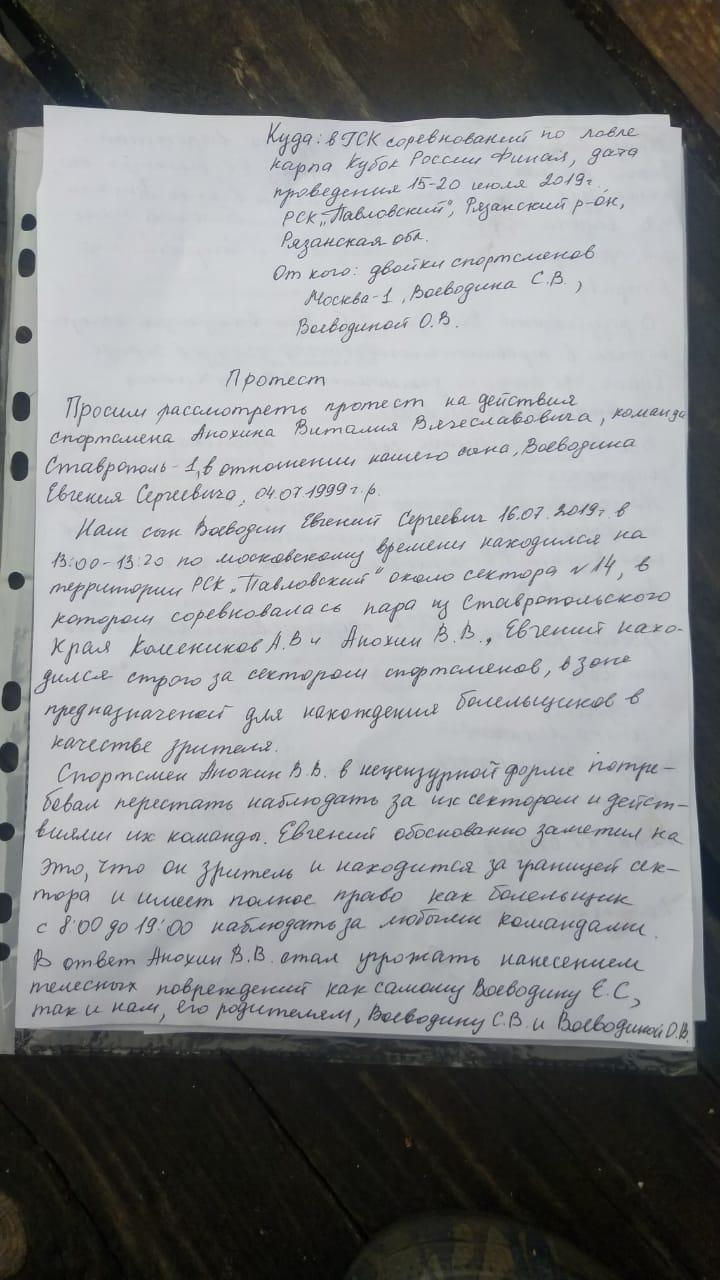 Куда: в ГСК соревнований по ловле
карпа Кубок России Финал, дата
проведения 15-20 июля 2019г.,
РСК „Павловский", Рязанский р-он,
Рязанская обл.
От кого: двойки спортсменов
Москва-1, Воеводина С.В.,
Воеводиной О.В.
Протест
Просим рассмотреть протест на действия
спортсмена Анохина Виталия Вячеславовича, команда
Ставрополь-1, в отношении нашего сына, Воеводина
Евгения Сергеевича, 04.07.1999г.р.
Наш сын Воеводин Евгений Сергеевич 16.07.2019г. в
13:00-13:20 по московскому времени находился на
территории РСК „Павловский" около сектора №14, в
котором соревновалась пара из Ставропольского
Края Комеников А.В и Анохин В.В., Евгений нахо-
дился строго за сектором спортсменов, в зоне
предназначеной для нахождения болельщиков в
качестве зрителя.
Спортсмен Анохин В.В. в нецензурной форме потре-
бовал перестать наблюдать за их сектором и дейст-
виями их команды. Евгений обоснованно заметил на
это, что он зритель и находится за границей сек-
тора и имеет полное право как болельщик
с 8:00 до 19:00 наблюдать за любыми командами.
В ответ Анохин В.В. стал угрожать нанесением
телесных повреждений как самому Воеводину Е.С,
так и нам, его родителям, Воеводину С.В. и Воеводиной О.В.